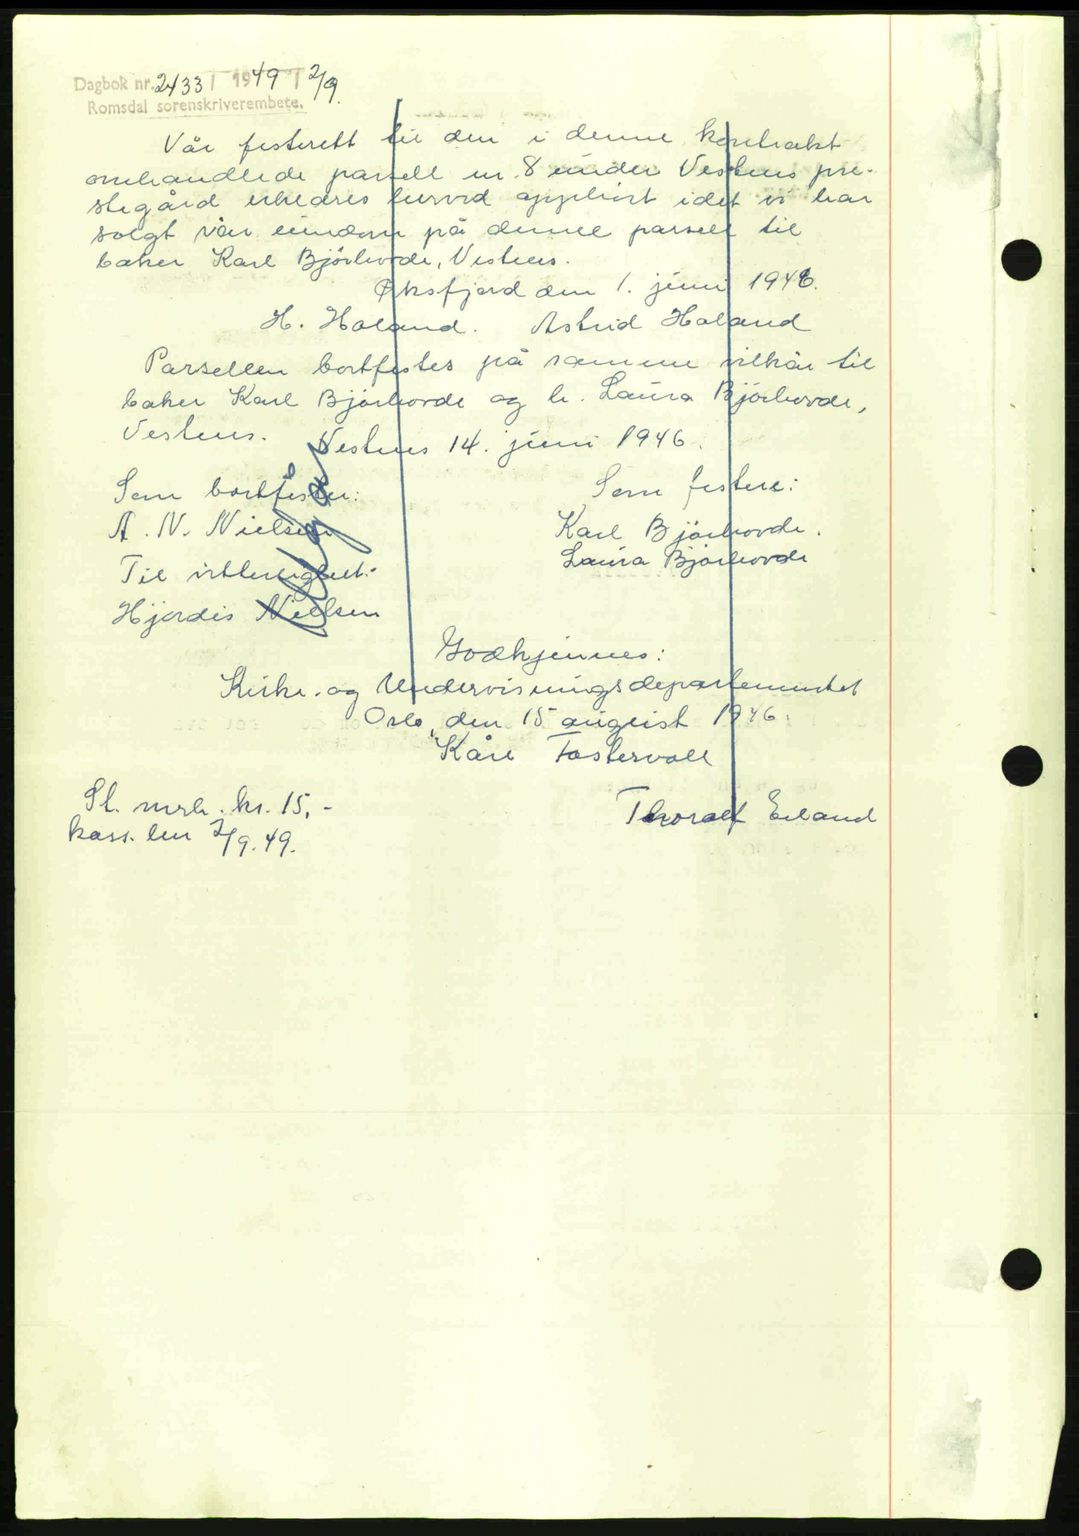 Dagbok nr. 2433 / 1949 2/9.
Romsdal sorenskriverembete.
Vår festerett til den i denne kontrakt
omhandlede parsell nr. 8 under Vestnes pre-
stegård erklæres herved opphört idet vi har
solgt vår eiendom på denne parsell til
baker Karl Bjórhovde, Vestnes.
Øksfjord den 1. juni 1946.
H. Haland. Astrid Haland
Parsellen bortfestes på samme vilkår til
baker Karl Bjórhovde og h. Laura Bjórhovde,
Vestnes. Vestnes 14. juni 1946.
Som bortfester: Som festere:
A. N. Nielsen Karl Bjórhovde.
Til vitterlighet: Laura Bjórhovde
Hjørdis Nielsen
Godkjennes:
Kirke- og Undervisningsdepartementet
Oslo, den 15 august 1946.
Kåre Fostervoll
St. mrk. kr. 15,- Thoralf Eiland
kass. den 2/9.49.